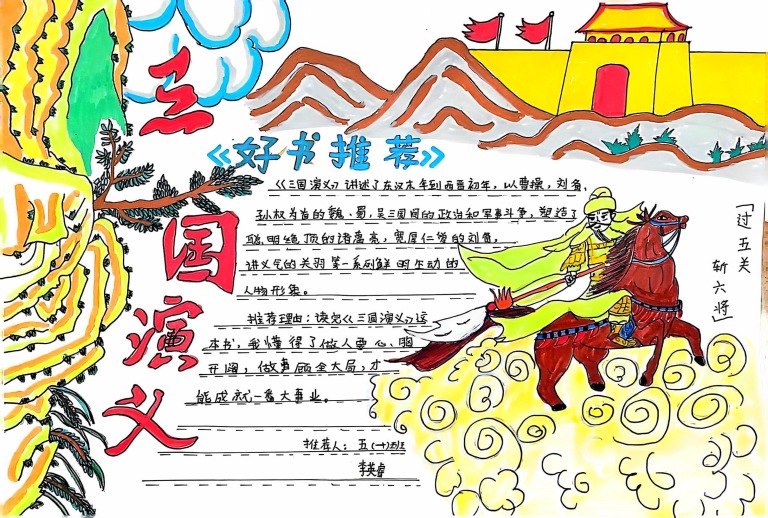 三国演义
《好书推荐》
《三国演义》讲述了东汉末年到西晋初年,以曹操,刘备,
孙权为首的魏、蜀、吴三国间的政治和军事斗争,塑造了
聪明绝顶的诸葛亮,宽厚仁爱的刘备,
讲义气的关羽等一系列鲜明生动的
人物形象。
推荐理由:读完《三国演义》这
本书,我懂得了做人要心胸
开阔,做事顾全大局,才
能成就一番大事业。
推荐人:五(一)班
李英卓
「过五关
斩六将」